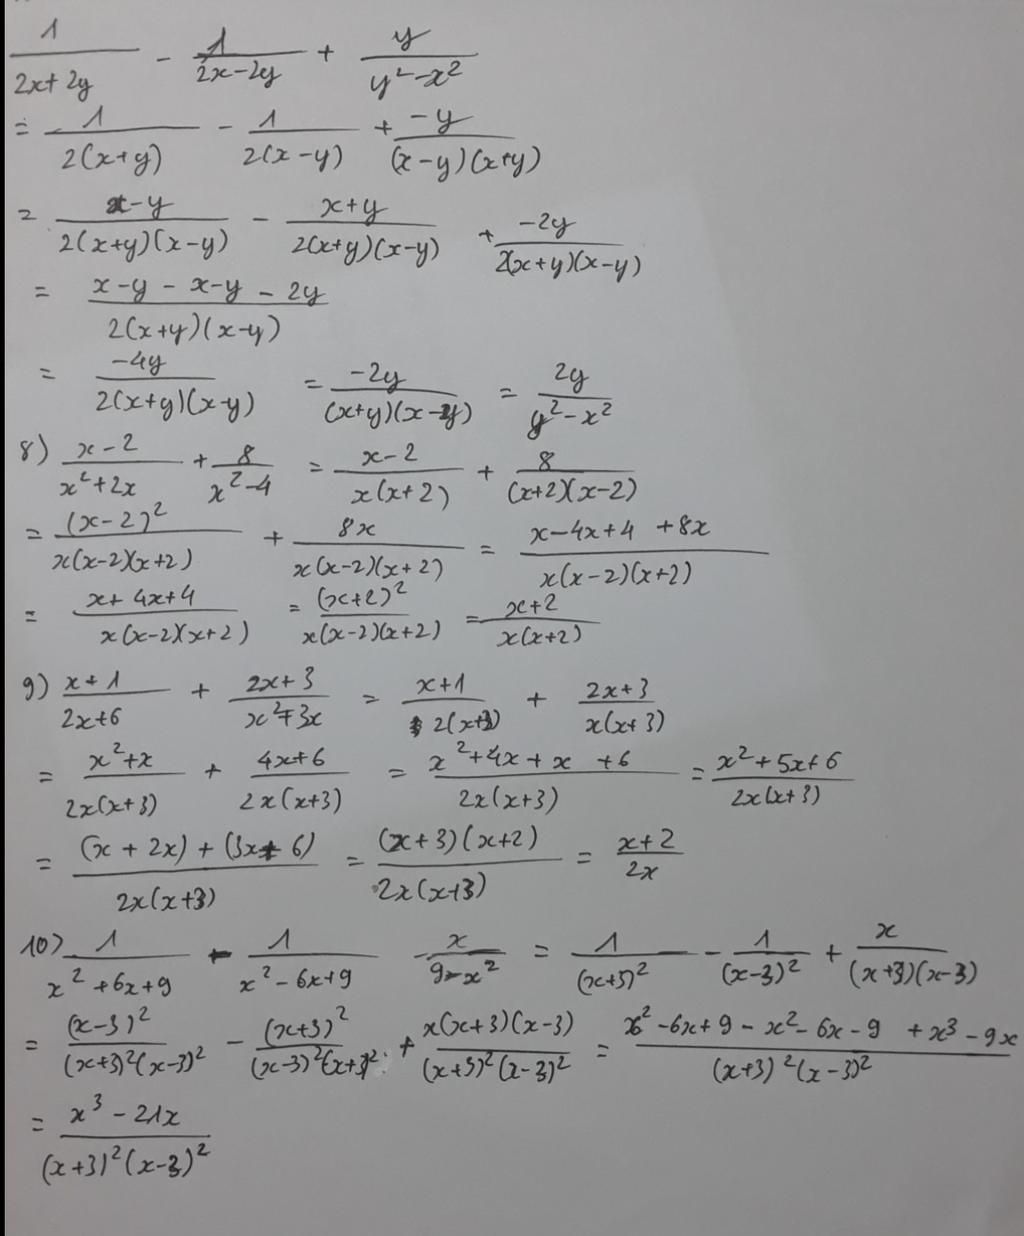 1/(2x+2y) - 1/(2x-2y) + y/(y²-x²)
= 1/(2(x+y)) - 1/(2(x-y)) + -y/((x-y)(x+y))
= (x-y)/(2(x+y)(x-y)) - (x+y)/(2(x+y)(x-y)) + -2y/(2(x+y)(x-y))
= (x-y-x-y-2y)/(2(x+y)(x-y))
= -4y/(2(x+y)(x-y)) = -2y/((x+y)(x-y)) = 2y/(y²-x²)
8) (x-2)/(x²+2x) + 8/(x²-4) = (x-2)/(x(x+2)) + 8/((x+2)(x-2))
= (x-2)²/(x(x-2)(x+2)) + 8x/(x(x-2)(x+2)) = (x-4x+4+8x)/(x(x-2)(x+2))
= (x+4x+4)/(x(x-2)(x+2)) = (x+2)²/(x(x-2)(x+2)) = (x+2)/(x(x+2))
9) (x+1)/(2x+6) + (2x+3)/(x²+3x) = (x+1)/(2(x+3)) + (2x+3)/(x(x+3))
= (x²+x)/(2x(x+3)) + (4x+6)/(2x(x+3)) = (x²+4x+x+6)/(2x(x+3)) = (x²+5x+6)/(2x(x+3))
= ((x+2x)+(3x+6))/(2x(x+3)) = ((x+3)(x+2))/(2x(x+3)) = (x+2)/(2x)
10) 1/(x²+6x+9) - 1/(x²-6x+9) - x/(9-x²) = 1/(x+3)² - 1/(x-3)² + x/((x+3)(x-3))
= (x-3)²/((x+3)²(x-3)²) - (x+3)²/((x-3)²(x+3)²) + x(x+3)(x-3)/((x+3)²(x-3)²) = (x²-6x+9-x²-6x-9+x³-9x)/((x+3)²(x-3)²)
= (x³-21x)/((x+3)²(x-3)²)